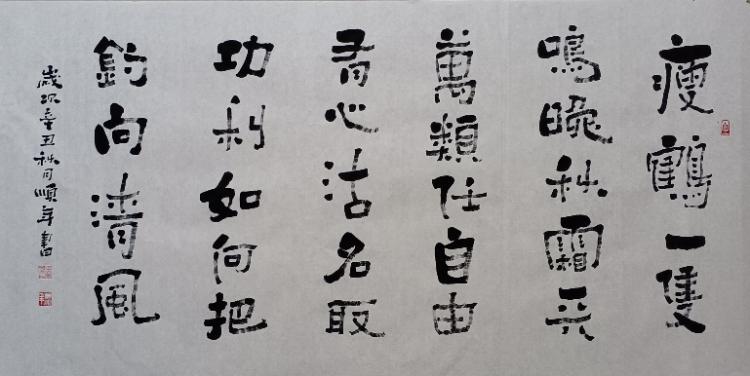 瘦鶴一隻
鳴秋霜
萬類任自由
心沽名取
功利如何把
釣向清風
歲次辛丑秋月順年書